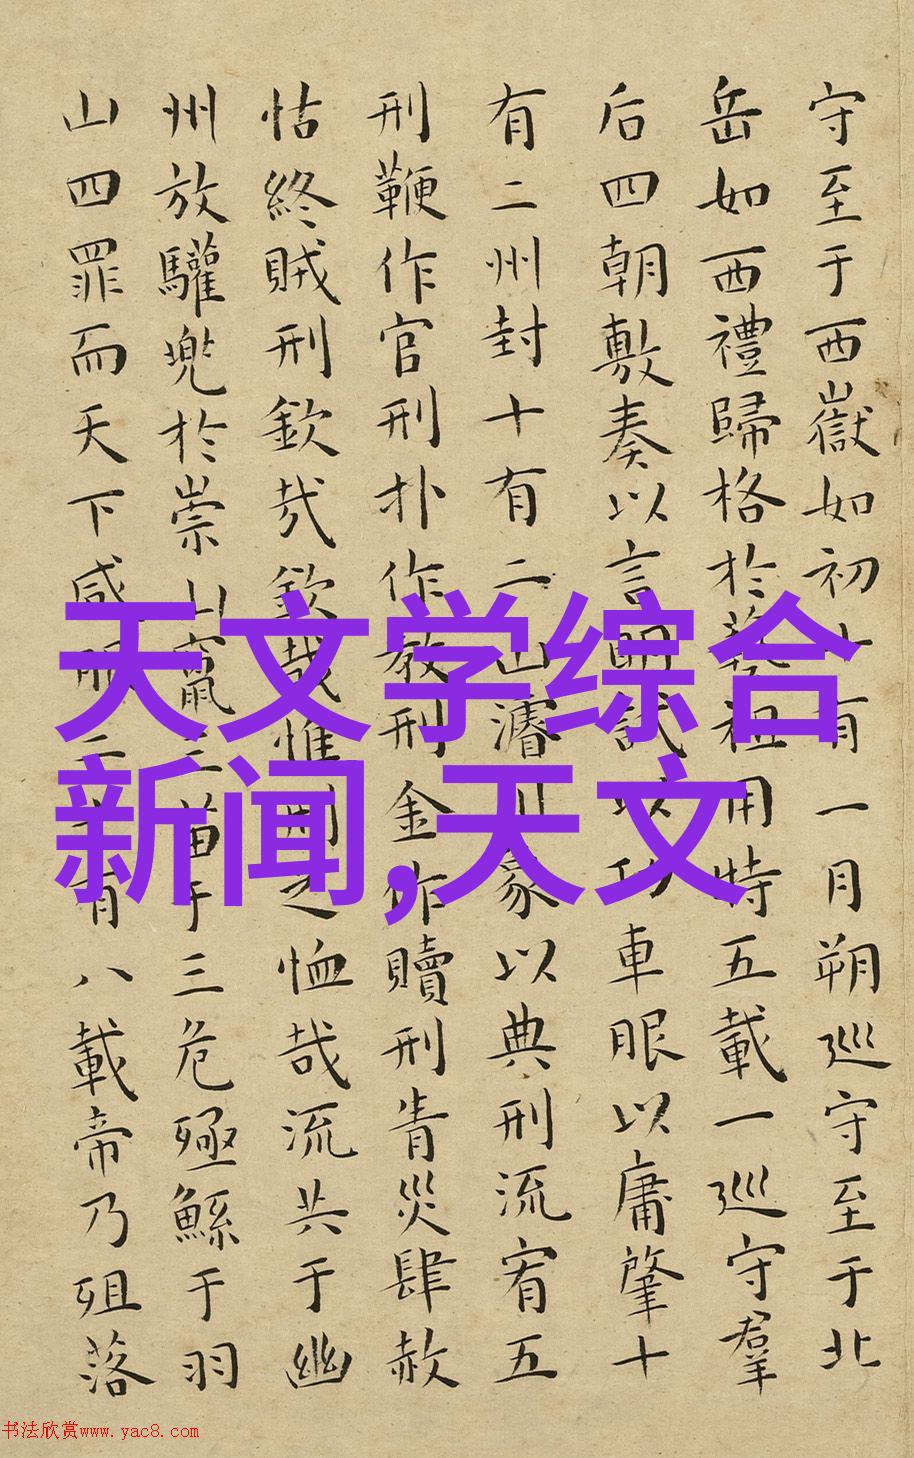 守至于西嶽如初十有一月朔巡守至于北
岳如西禮歸格於藝祖用特五載一巡守羣
后四朝敷奏以言明試以功車眼以庸肇十
有二州封十有二山濬川象以典刑流宥五
刑鞭作官刑扑作教刑金作贖刑眚災肆赦
怙終賊刑欽哉欽哉惟刑之恤哉流共于幽
州放驩兜於崇山竄三苗于三危殛鯀于羽
山四罪而天下咸服二十有八載帝乃殂落
天文学综合
新闻,天文
书法欣赏www.yac8.com